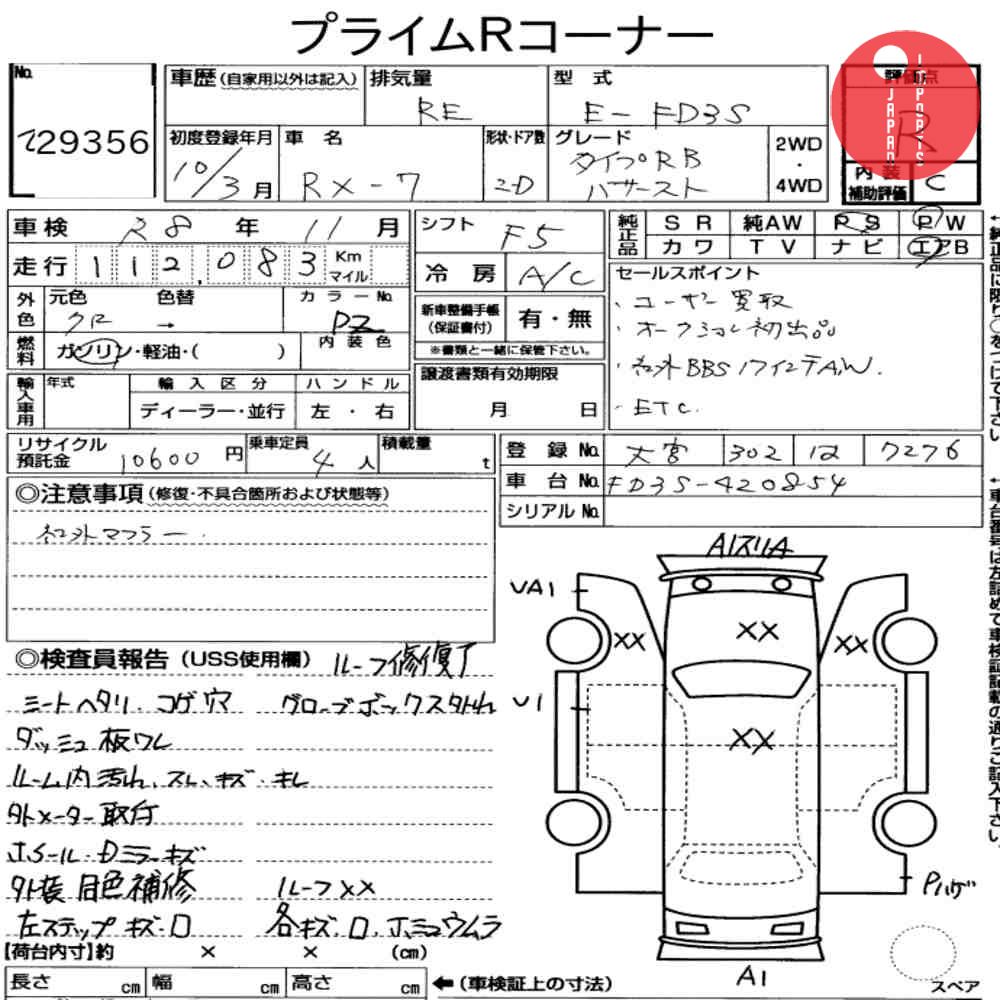 プライムRコーナー
JAPAN IMPORTS
No. 29356
車歴 (自家用以外は記入) 排気量 RE
型式 E-FD3S
評価点 R
初度登録年月 10/3月
車名 RX-7
形状・ドア数 2-D
グレード タイプRB バサースト
2WD・4WD
内装補助評価 C
車検 R8年 11月
シフト F5
純正品 SR 純AW RS PW
カワ TV ナビ エアB
走行 112,083 Km マイル
冷房 A/C
セールスポイント
・ユーザー買取
・オークション初出品
・社外BBS17インチAW.
・ETC.
外色 元色 クロ 色替 → カラーNo. PZ
新車整備手帳 (保証書付) 有・無
※書類と一緒に保管下さい。
燃料 ガソリン・軽油・( ) 内装色
輸入車用 年式 輸入区分 ハンドル
ディーラー・並行 左・右
譲渡書類有効期限
月 日
リサイクル預託金 10600円 乗車定員 4人 積載量 t
登録No. 大宮 302 は 7276
車台No. FD3S-420854
シリアルNo.
◎注意事項 (修復・不具合箇所および状態等)
社外マフラー
◎検査員報告 (USS使用欄) ルーフ修復了
シートヘタリ.コゲ穴 グローブボックス外れ
ダッシュ板ワレ
ルーム内汚れ.スレ.キズ.キレ
外メーター取付
ホイール・Dミラーキズ
外装 同色補修 ルーフXX
左ステップキズ・凹 各キズ.凹.
【荷台内寸】約 × × (cm)
長さ cm 幅 cm 高さ cm ←(車検証上の寸法)
VA1
U1
XX
XX
XX
XX
Pハゲ
A1
スペア
←純正品に限り○をつけて下さい。
←車台番号は左詰めで車検証記載の通りご記入下さい。